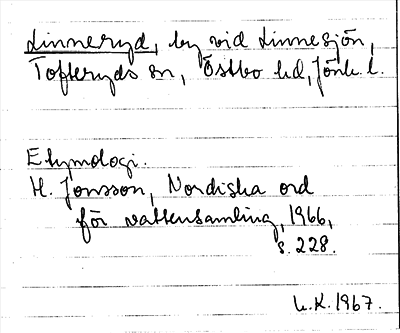 Linneryd, by vid Linnesjön,
Tofteryds sn, Östbo hd, Jönk. l.
Etymologi.
H. Jonsson, Nordiska ord
för vattensamling, 1966,
s. 228.
L.K. 1967.